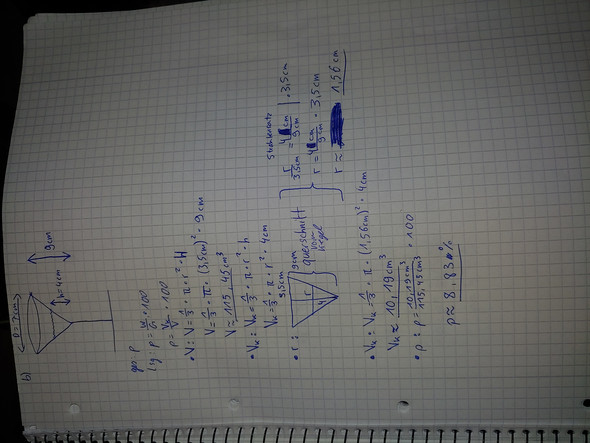 b)
9cm
h=4cm
ges: P
Lsg: P = W/G · 100
P = Vk/V · 100
• V: V = 1/3 · π · r² · H
V = 1/3 · π · (3,5cm)² · 9cm
V ≈ 115,45cm³
• Vk: Vk = 1/3 · π · r² · h
Vk = 1/3 · π · r² · 4cm
• r:
3,5cm
9cm
r
4
Querschnitt
vom
Kegel
Strahlensatz
r/3,5cm = 4cm/9cm | · 3,5cm
r = 4cm/9cm · 3,5cm
r ≈ 1,56cm
• Vk: Vk = 1/3 · π · (1,56cm)² · 4cm
Vk ≈ 10,19cm³
• p: p = 10,19cm³/115,45cm³ · 100
p ≈ 8,83%